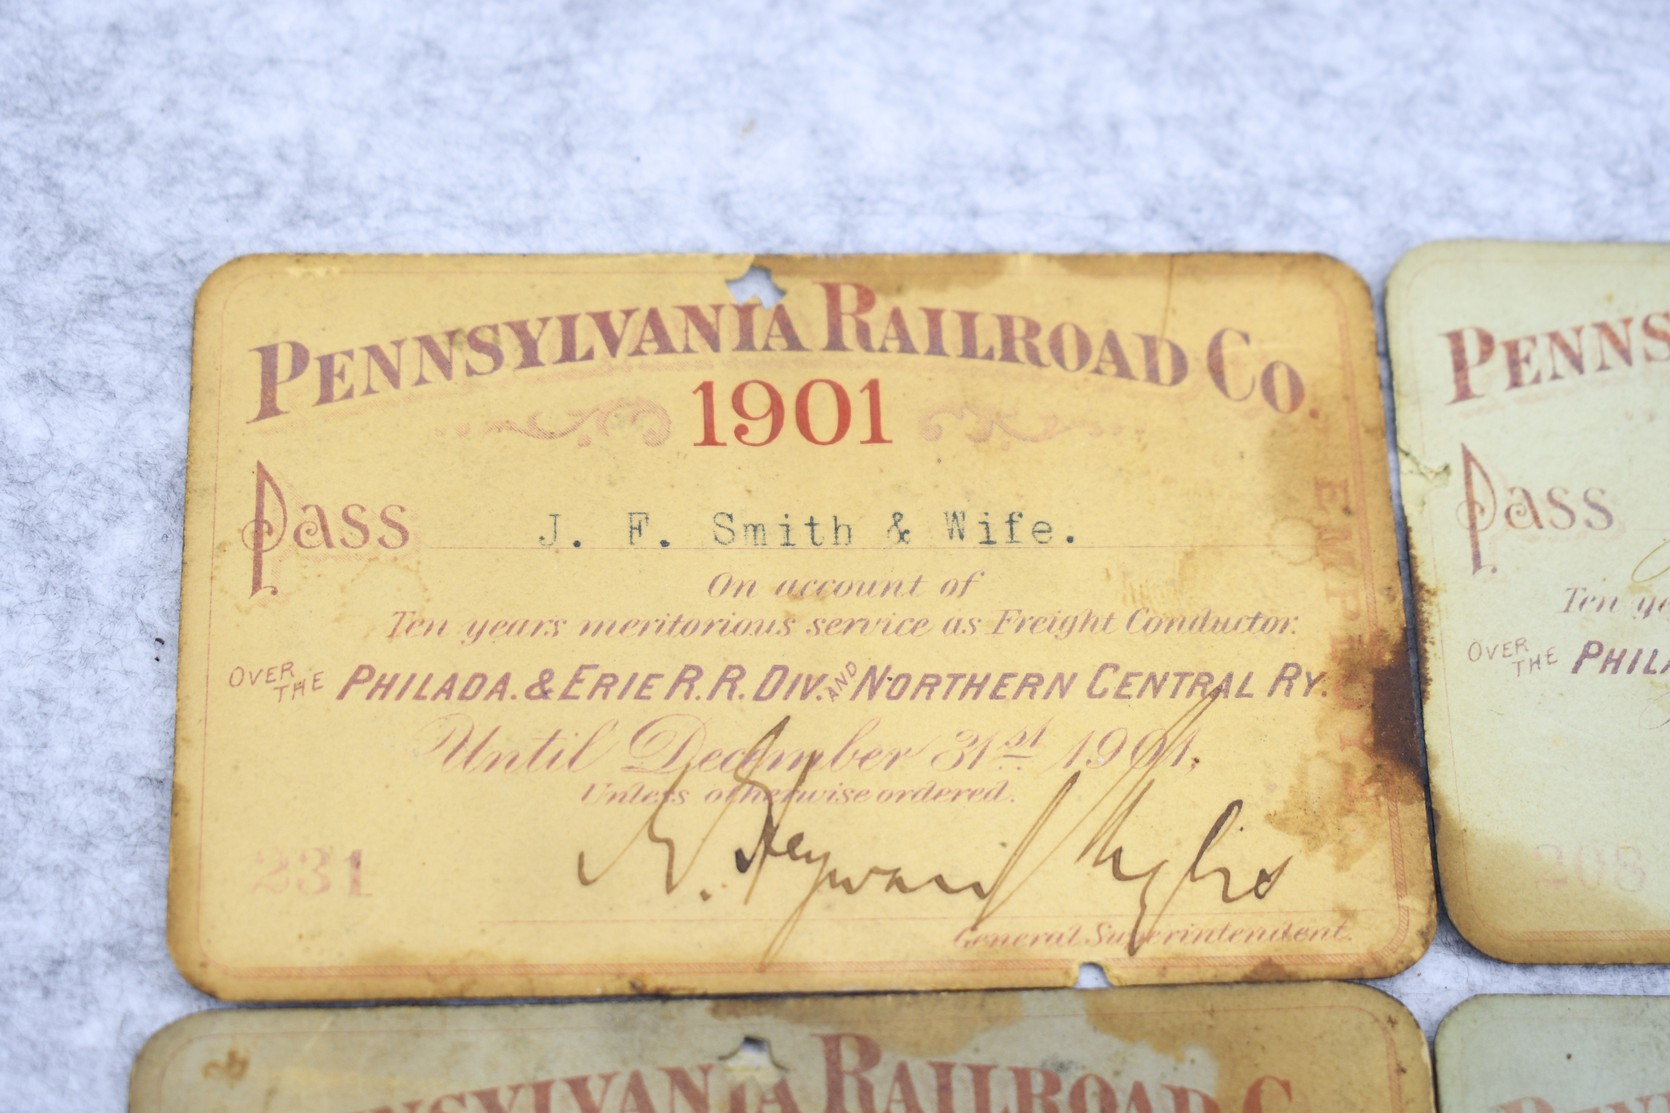 PENNSYLVANIA RAILROAD CO.
1901
Pass J. F. Smith & Wife.
On account of
Ten years meritorious service as Freight Conductor.
OVER THE PHILADA. & ERIE R.R. DIV. AND NORTHERN CENTRAL RY.
Until December 31st 1901,
Unless otherwise ordered.
231
General Superintendent.
EMPLOYE
PENNS
Pass
Ten ye
OVER THE PHILA
208
NSYLVANIA RAILROAD C